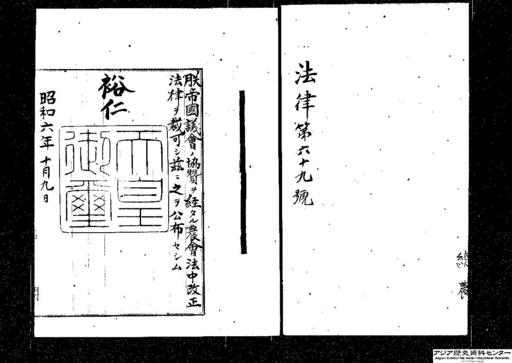 法律第六十九號
總 農
朕帝國議會ノ協贊ヲ經タル農會法中改正
法律ヲ裁可シ茲ニ之ヲ公布セシム
裕仁
天皇御璽
昭和六年十月九日
アジア歴史資料センター
Japan Center for Asian Historical Records